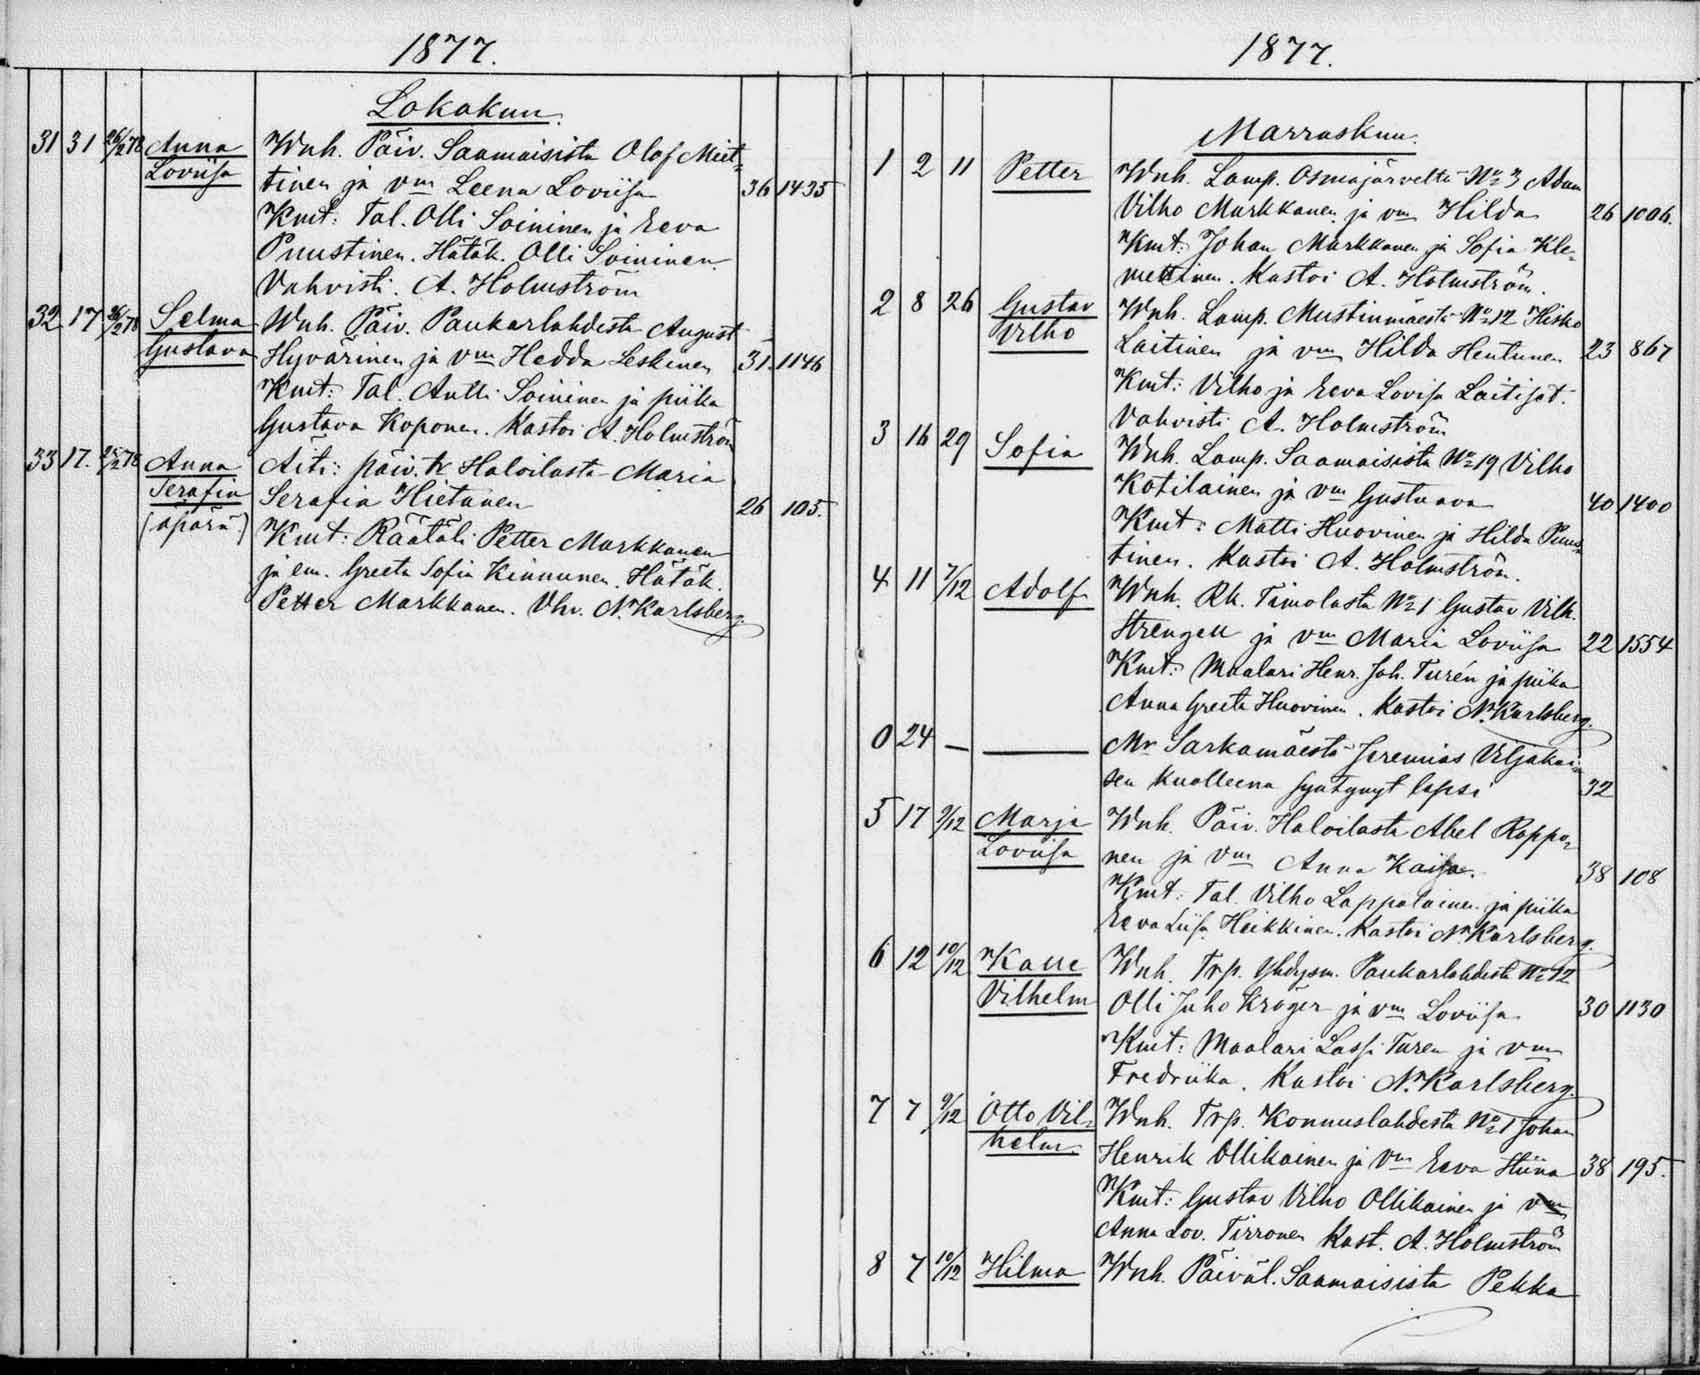 1877.
Lokakuu.
31 31 26/2 78 Anna Wnh. Päiv. Saamaisista Olof Miet-
Loviisa tinen ja vm Leena Loviisa 36 1435
Kmt: Tal. Olli Soininen ja Eeva
Puustinen. Hätäk. Olli Soininen.
Vahvisti A. Holmström
32 17 26/2 78 Selma Wnh. Päiv. Paukarlahdesta August
Gustava Hyvärinen ja vm Hedda Leskinen 31. 1146
Kmt: Tal. Antti Soininen ja piika
Gustava Koponen. Kastoi A. Holmström
33 17. 78 Anna Äiti: päiv. tr Haloilasta Maria
Serafia Serafia Hietanen 26 105.
(äpärä) Kmt: Räätäli Petter Markkanen
ja em. Greeta Sofia Kinnunen. Hätäk.
Petter Markkanen. Vhv. N. Karlsberg.
1877.
Marraskuu.
1 2 11 Petter Wnh. Lamp. Osmajärveltä No 3 Adam
Vilho Markkanen ja vm Hilda 26 1006.
Kmt: Johan Markkanen ja Sofia Kle-
mettinen. Kastoi A. Holmström.
2 8 26 Gustav Wnh. Lamp. Mustinmäestä No 12 Hisko
Vilho Laitinen ja vm Hilda Hentunen 23 867
Kmt: Vilho ja Eeva Lovisa Laitiset.
Vahvisti A. Holmström
3 16 29 Sofia Wnh. Lamp. Saamaisista No 19 Vilho
Kotilainen ja vm Gustaava 40 1400
Kmt: Matti Huovinen ja Hilda Puus-
tinen. Kastoi A. Holmström.
4 11 7/12 Adolf Wnh. Rk. Timolasta No 1 Gustav Vilh.
Strengell ja vm Maria Loviisa 22 1554
Kmt: Maalari Henr. Joh. Turén ja piika
Anna Greeta Huovinen. Kastoi N. Karlsberg.
0 24 — — Mr Sarkamäestä Jeremias Viljakai-
sen kuolleena syntynyt lapsi 32
5 17 9/12 Marja Wnh. Päiv. Haloilasta Abel Roppo-
Loviisa nen ja vm Anna Kaisa. 38 108
Kmt: Tal. Vilho Lappalainen ja piika
Eeva Liisa Heikkinen. Kastoi N. Karlsberg.
6 12 10/12 Kalle Wnh. Trp. Yhdysm. Paukarlahdesta No 12
Vilhelm Olli Juho Kröger ja vm Loviisa 30 1130
Kmt: Maalari Lassi Turen ja vm
Fredriika. Kastoi N. Karlsberg.
7 7 9/12 Otto Vil- Wnh. Trp. Konnuslahdesta No 1 Johan
helm Henrik Ollikainen ja vm Eeva Stiina 38 195.
Kmt: Gustav Vilho Ollikainen ja vm
Anna Lov. Tirronen Kast. A. Holmström
8 7 10/12 Hilma Wnh. Päiväl. Saamaisista Pekka